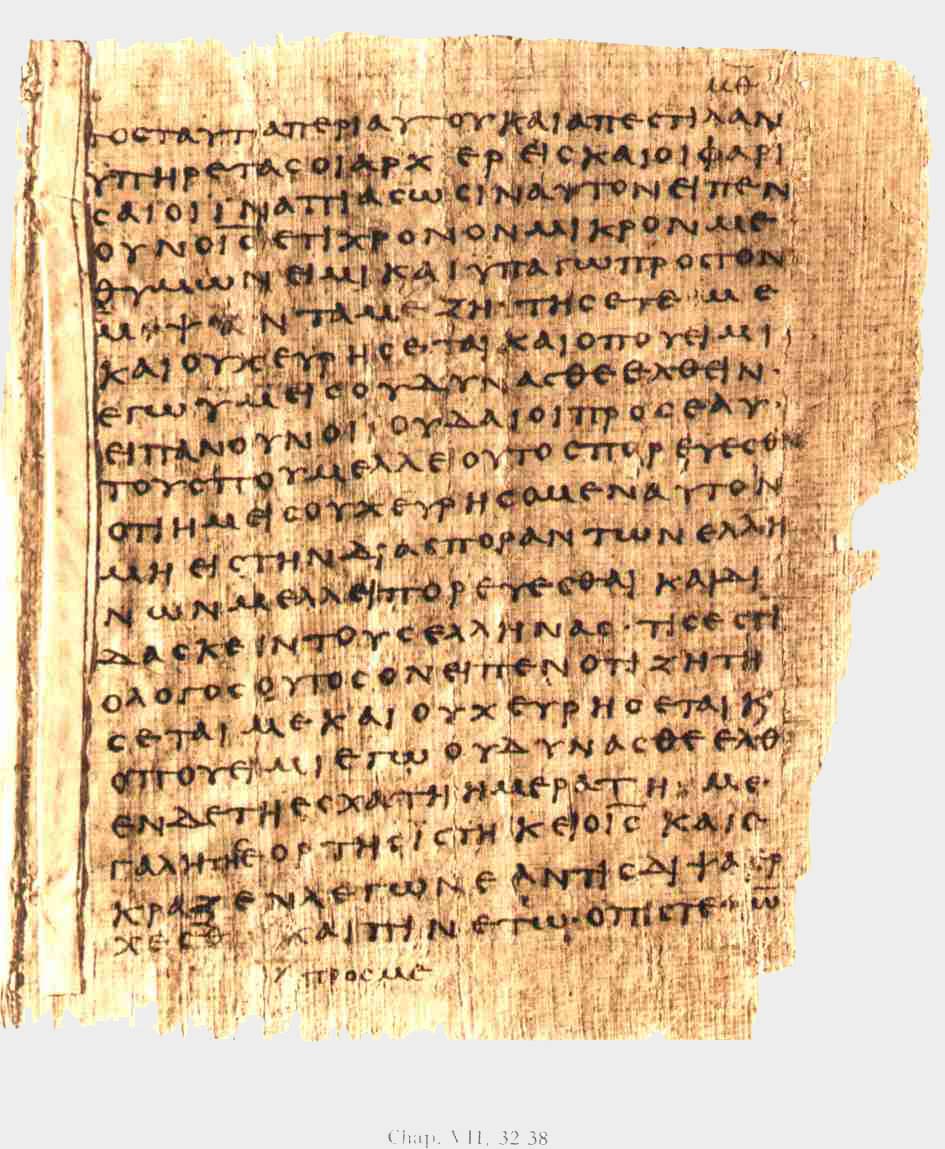 μθ
τοσταυταπεριαυτουκαιαπεστιλαν
υπηρετασοιαρχιερεισκαιοιφαρι
σαιοιϊναπιασωσιναυτονειπεν
ουνοι̅σ̅ετιχρονονμικρονμε
θυμωνειμικαιυπαγωπροστον
πεμψανταμεζητησετεμε
καιουχευρησεταικαιοπουειμι
εγωυμεισουδυνασθεελθειν·
ειπανουνοιϊουδαιοιπροσεαυ·
τουσπουμελλειουτοσπορευεσθαι
οτιημεισουχευρησομεναυτον
μηειστηνδιασποραντωνελλη
νωνμελλειπορευεσθαικαιδι
δασκειντουσελληνας·τισεστι
ολογοσουτοσονειπενοτιζητη
σεταιμεκαιουχευρησεταικ
οπουειμιεγωουδυνασθεελθ
ενδετηεσχατηημερατημε
γαλητησεορτησϊστηκειοι̅σ̅και
κραζενλεγωνεαντισδιψαερ
χεσθω καιπινετω·οπιστε
προσμε
Chap. VII, 32-38